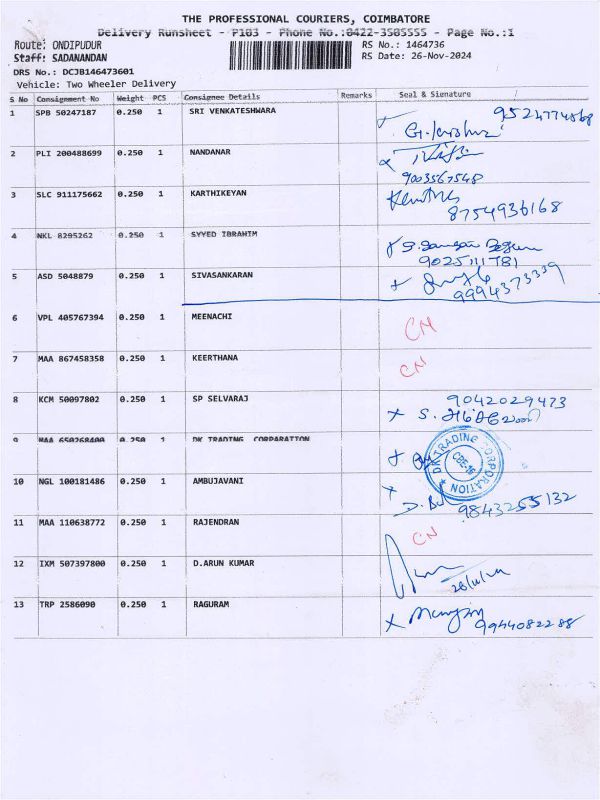 THE PROFESSIONAL COURIERS, COIMBATORE
Delivery Runsheet - P103 - Phone No.:0422-3505555 - Page No.:1
Route: ONDIPUDUR
RS No.: 1464736
Staff: SADANANDAN
RS Date: 26-Nov-2024
DRS No.: DCJB146473601
Vehicle: Two Wheeler Delivery
S No Consignment No Weight PCS Consignee Details Remarks Seal & Signature
1 SPB 50247187 0.250 1 SRI VENKATESHWARA
2 PLI 200488699 0.250 1 NANDANAR 9003567548
3 SLC 911175662 0.250 1 KARTHIKEYAN 8754936168
4 NKL 8295262 0.250 1 SYYED IBRAHIM 9025111781
5 ASD 5048879 0.250 1 SIVASANKARAN 9994373339
6 VPL 405767394 0.250 1 MEENACHI CN
7 MAA 867458358 0.250 1 KEERTHANA CN
8 KCM 50097802 0.250 1 SP SELVARAJ 9042029473
9 MAA 650268400 0.250 1 DK TRADING CORPARATION DK TRADING CORPORATION CBE-16
10 NGL 100181486 0.250 1 AMBUJAVANI 9843255132
11 MAA 110638772 0.250 1 RAJENDRAN CN
12 IXM 507397800 0.250 1 D.ARUN KUMAR
13 TRP 2586090 0.250 1 RAGURAM 9944082288